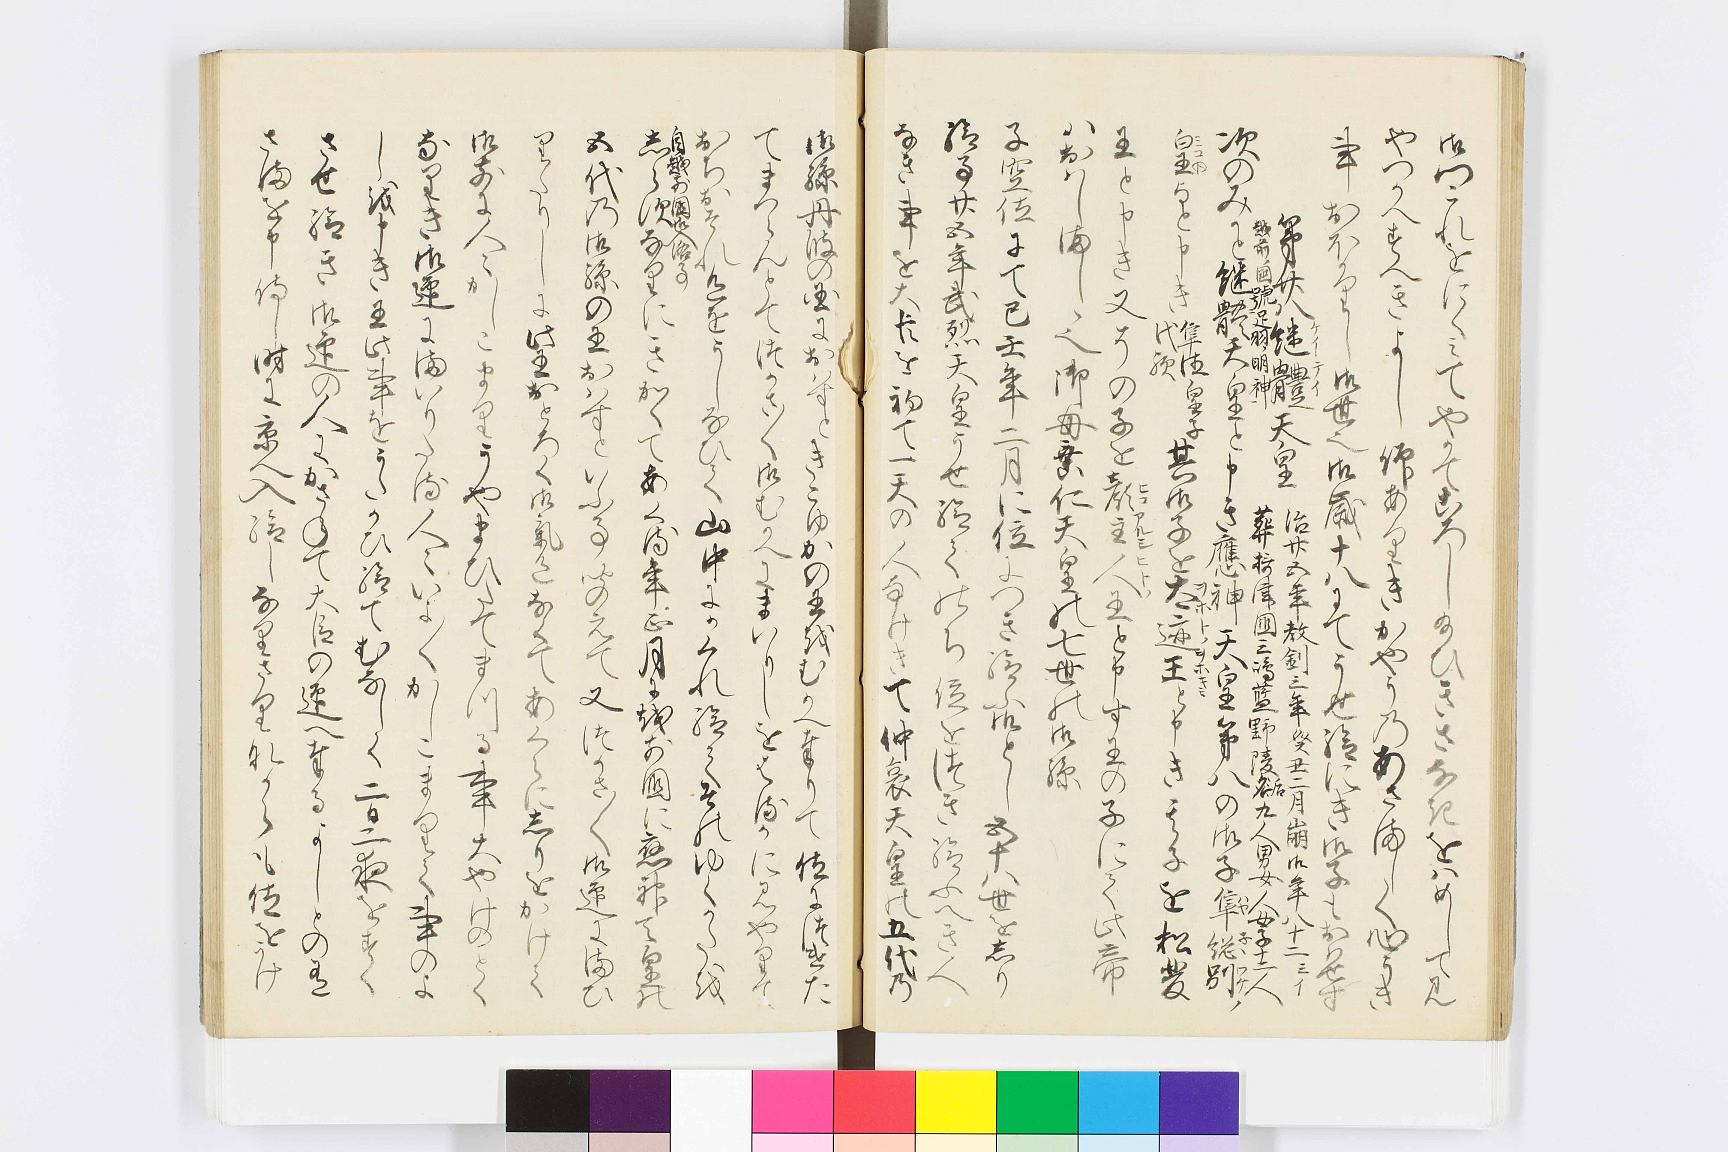 御門これをにくみてやかてころし給ひきさなきをはめして見
やつかへすへきよし仰ありきかやうのあさましく心うき
事おほかりし御世也御歳十八にてうせ給にき御子もおはせす
第廿八継體天皇 治廿五年教到三年癸丑二月崩御年八十二三イ
越前國號足羽明神 葬摂津国三嶋藍野陵后九人男女人女子十二人
次のみかと継體天皇と申き應神天皇第八の御子隼総別
皇子と申き 隼結皇子 其御子を太迹王と申き其子を私斐
王と申き又その子を彦主人王と申す王の子にて此帝
はおはしましし也御母垂仁天皇の七世の御孫
子空位にて巳壬年二月に位につき給ふ御とし五十八世をしり
給事廿五年武烈天皇うせ給てのち位を継き給ふへき人
なき事を大臣を初て一天の人なけきて仲哀天皇の五代の
御孫丹波の國におはすときこゆかの王をむかへ奉りて位につけた
てまつらんとてつかさ〳〵御むかへにまいりしをはるかに見やりて
おちおそれ色をうしなひて山中にかくれ給てそのゆくゑを
自越前國御入洛事
しらすなりにきかくてあくる年正月に越前國に應神天皇の
五代の御孫の王おはすといふ事聞えて又つかさ〳〵御迎にまひ
りたりしに此王おとろく御氣色なくてあくらにしりをかけて
御前に人々かしこまりうやまひたてまつる事大やけのことく
なりき御迎にまいりたる人々いよ〳〵かしこまりて事のよ
しを申き王此事をうたかひ給てむなしく二日二夜をすく
させ給き御迎の人にかさねて大臣の迎へ奉るよしとの有
さまを申侍し時に京へ入給しなりさりなからも位をうけ